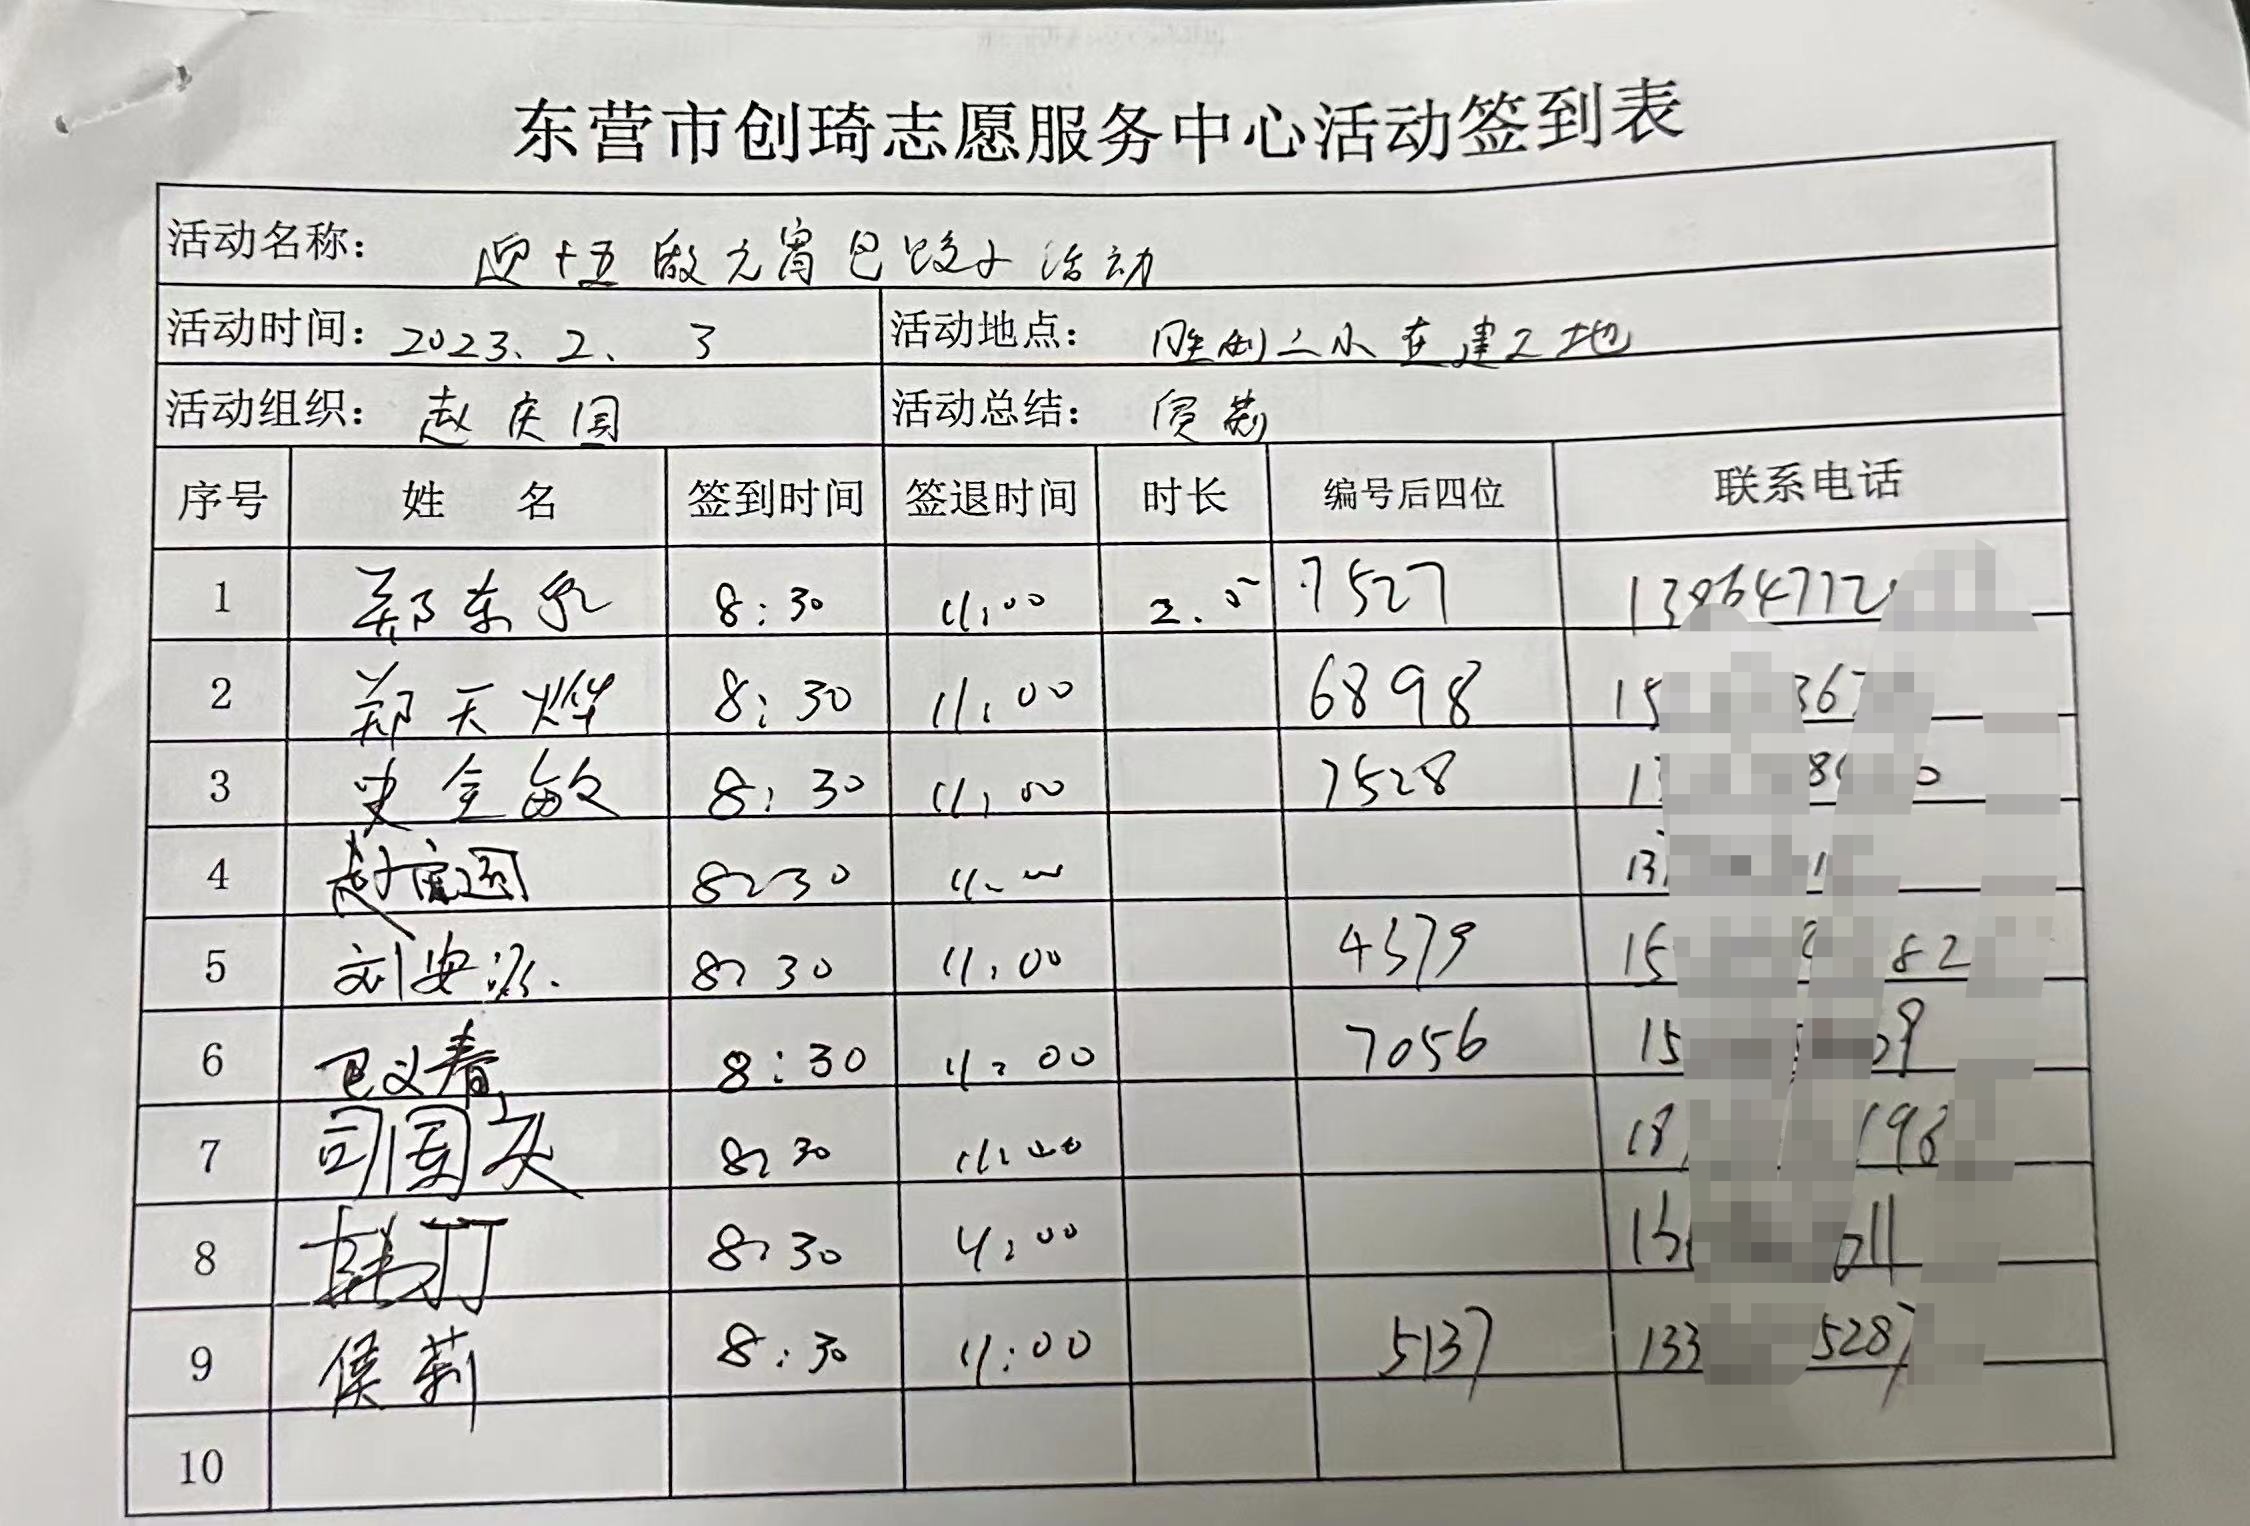 东营市创琦志愿服务中心活动签到表
活动名称: 迎十五做元宵包饺子活动
活动时间: 2023.2. 3 活动地点: 胜利二小在建工地
活动组织: 赵庆国 活动总结: 侯莉
序号 姓 名 签到时间 签退时间 时长 编号后四位 联系电话
1 郑东 8:30 11:00 2.5 7527
2 郑天烨 8:30 11:00 6898
3 史全敏 8:30 11:00 7528
4 8:30 11:00
5 刘安 8:30 11:00 4379
6 8:30 11:00 7056
7 司国庆 8:30 11:00
8 韩丁 8:30 11:00
9 侯莉 8:30 11:00 5137 133 5287
10